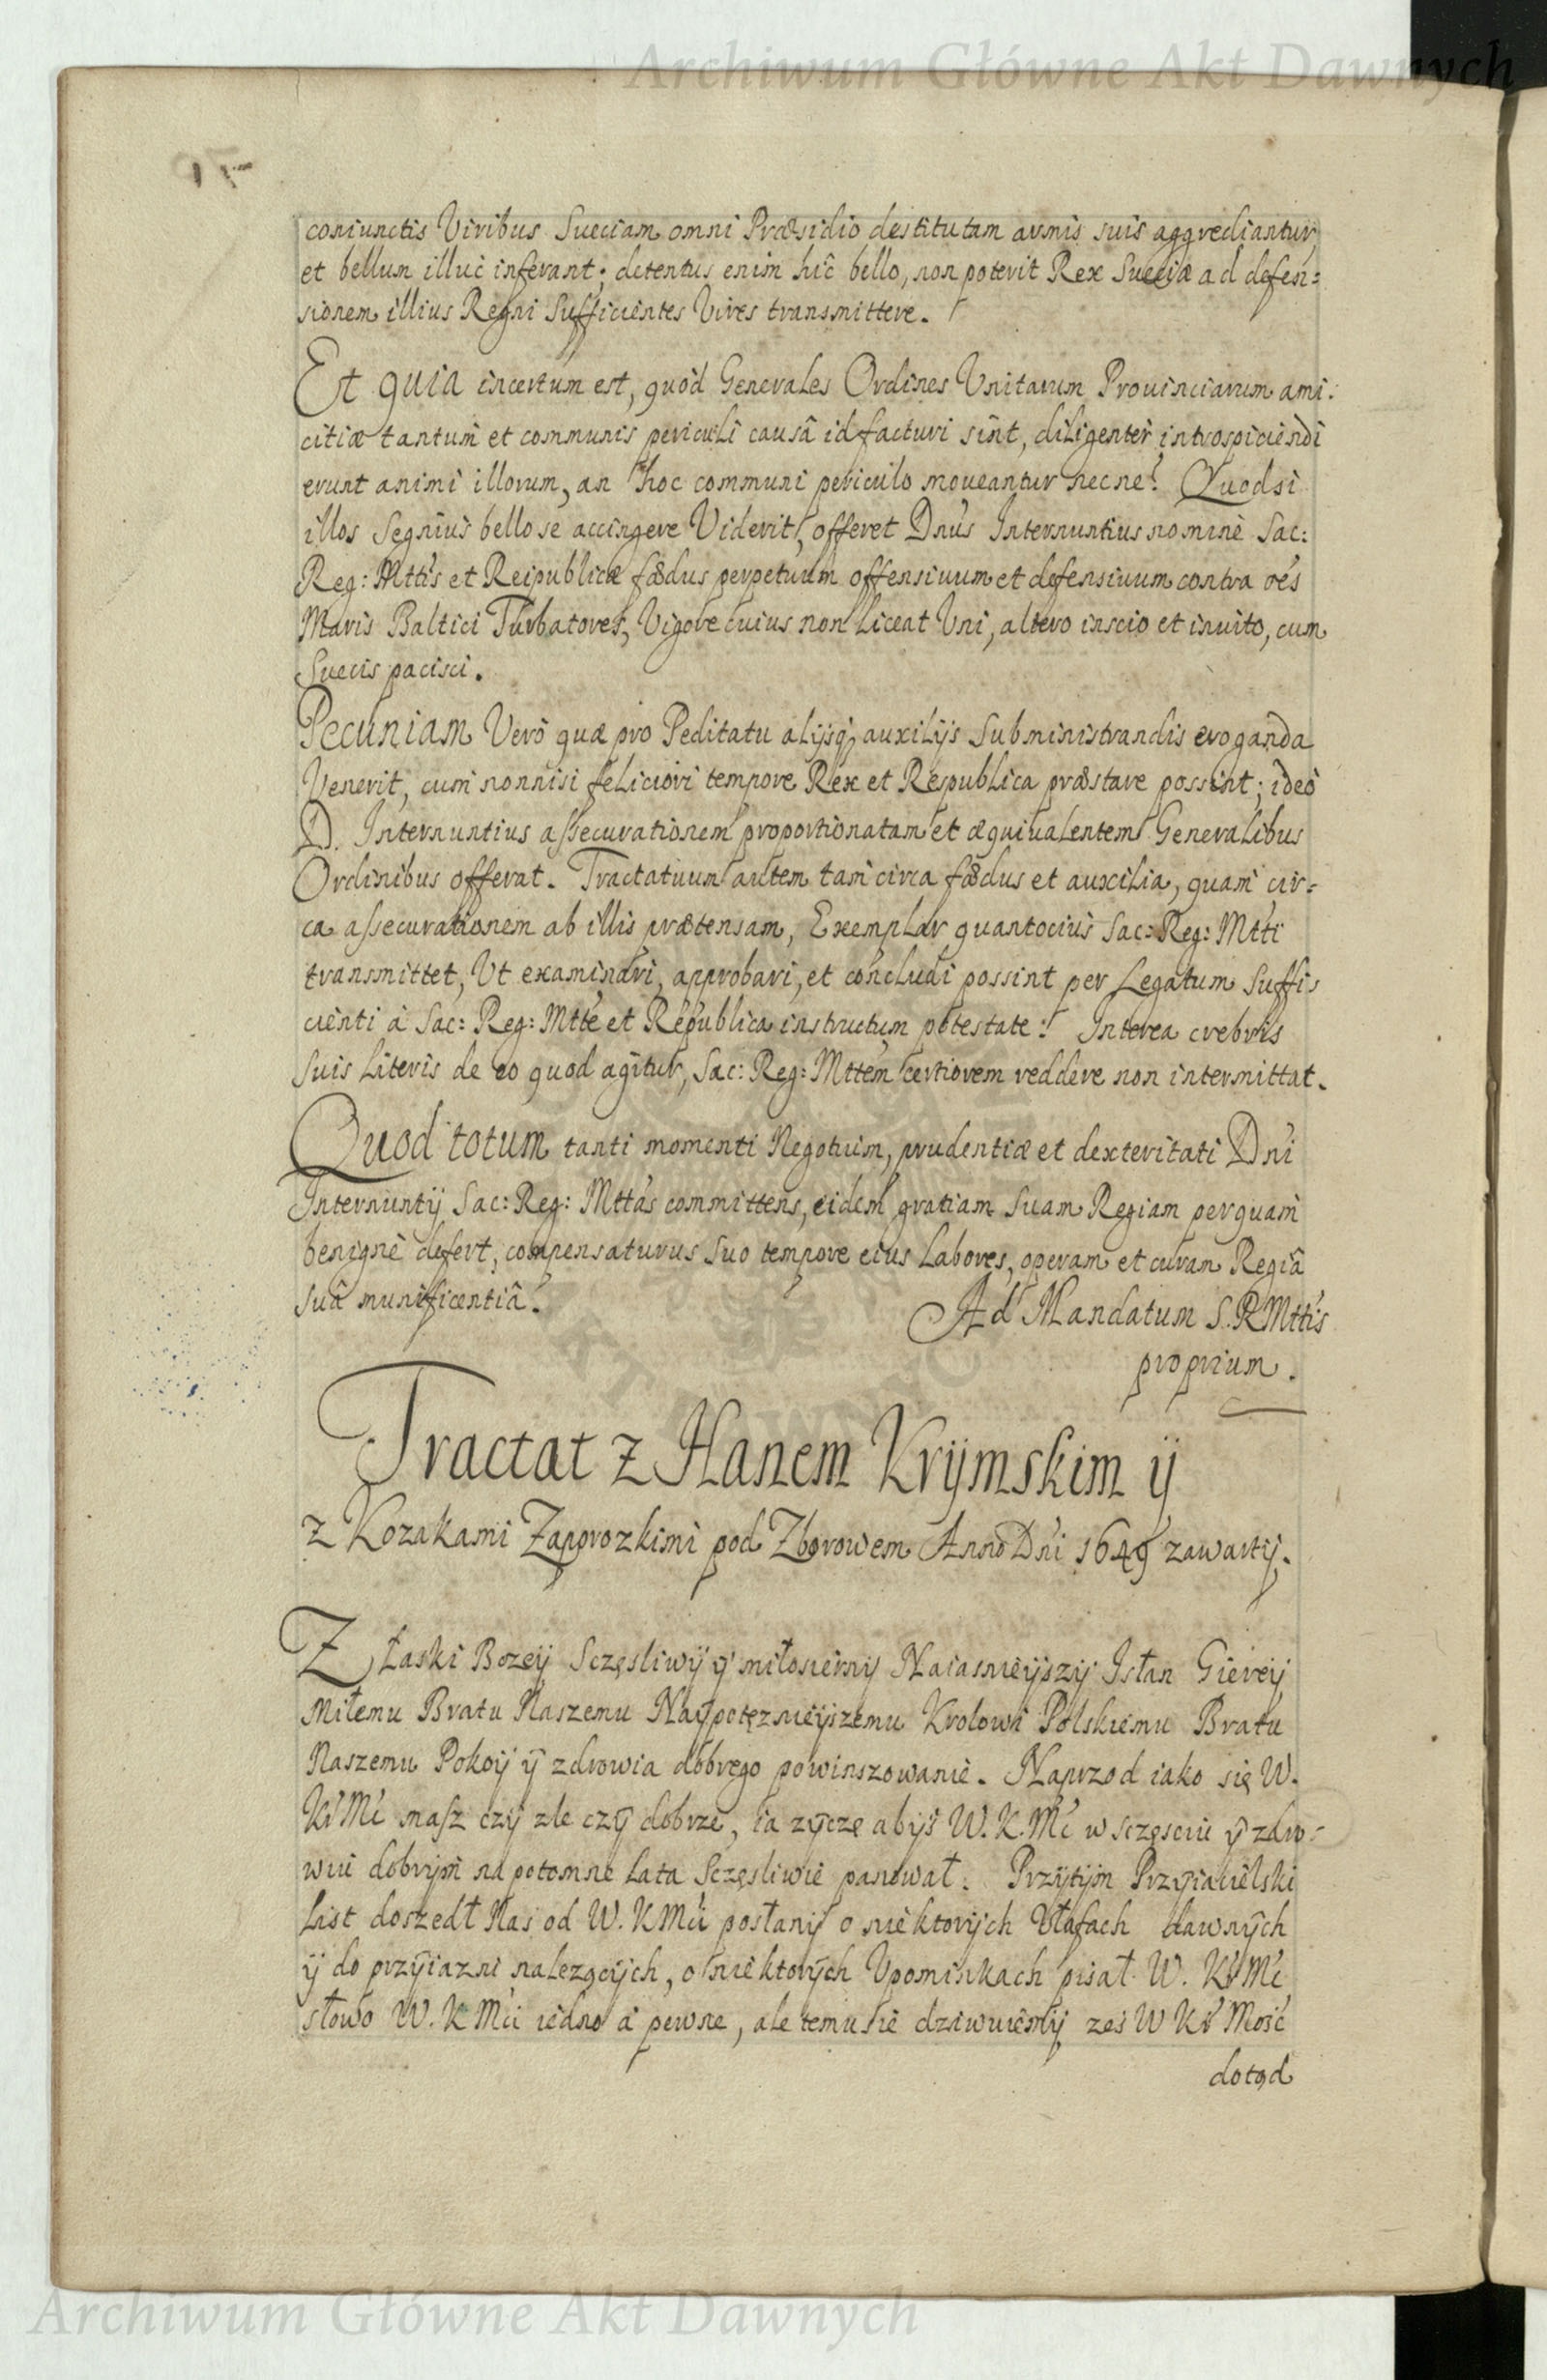 Archiwum Główne Akt Dawnych
coniunctis Viribus Sueciam omni Præsidio destitutam armis suis aggrediantur,
et bellum illuc inferant; detentus enim hîc bello, non poterit Rex Sueciæ ad defen=
sionem illius Regni Sufficientes Vires transmittere.
Et quia incertum est, quòd Generales Ordines Unitarum Prouinciarum ami:
citiæ tantum et communis periculi causâ id facturi sint, diligenter introspiciendi
erunt animi illorum, an hoc communi periculo moueantur necne! Quodsi
illos Segnius bello se accingere Viderit, offeret Dnus Internuntius nomine Sac:
Reg: Mttis et Reipublicæ fœdus perpetuum offensiuum et defensiuum contra oẽs
Maris Baltici Turbatores, Vigore cuius non liceat Vni, altero inscio et inuito, cum
Suecis pacisci.
Pecuniam Verò quæ pro Peditatu alijsq; auxilijs Subministrandis eroganda
Venerit, cum nonnisi feliciori tempore Rex et Respublica præstare possint; ideò
D. Internuntius assecurationem proportionatam et æquiualentem Generalibus
Ordinibus offerat. Tractatuum autem tam circa fœdus et auxilia, quam cir=
ca assecurationem ab illis prætensam, Exemplar quantocius Sac: Reg: Mtti
transmittet, Ut examinari, approbari, et concludi possint per Legatum Suffis
cienti à Sac: Reg: Mtte et Republica instructum potestate! Interea crebris
Suis Literis de eo quod agitur, Sac: Reg: Mttem certiorem reddere non intermittat.
Quod totum tanti momenti Negotium, prudentiæ et dexteritati Dni
Internuntij Sac: Reg: Mttas committens, eidem gratiam Suam Regiam perquam
benignè defert, compensaturus Suo tempore eius Labores, operam et curam Regiâ
Suâ munificentiâ.
Ad Mandatum S.RMttis
proprium.
Tractat z Hanem Krijmskim ij
z Kozakami Zaporozkimi pod Zborowem Anno Dni 1649 zawartij.
Z Łaski Bozeij Sczęsliwij ij miłosiernij Naiasnieijszij Isłan Giereij
Miłemu Bratu Naszemu Naijpotęznieijszemu Krolowi Polskiemu Bratu
Naszemu Pokoij ij zdrowia dobrego powinszowanie. Naprzod iako się W.
KrMć masz czij zle czij dobrze, ia zijczę abijs W.K.Mć w sczęsciu ij zdro=
wiu dobrijm na potomne Lata Sczęsliwie panował. Przijtijm Przijiacielski
List doszedł Nas od W. KMci posłanij o niektorijch Vłafach dawnijch
ij do przijiazni nalezącijch, o niektorijch Vpominkach pisał W. KrMć
słowo W. KMci iedno a pewne, ale temu sie dziwuiemij zes W Kr Mosć
dotąd
Archiwum Główne Akt Dawnych